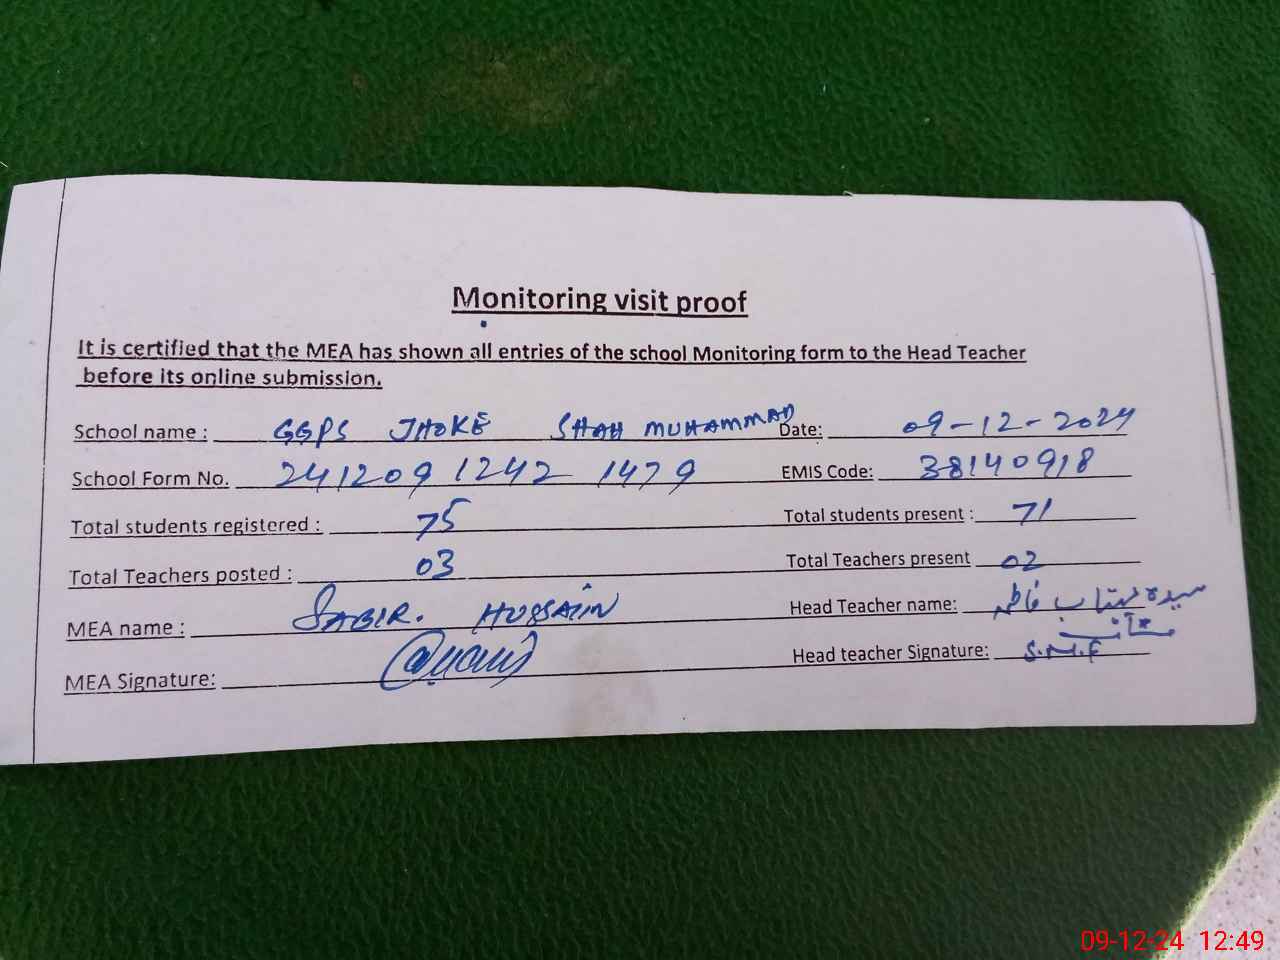 Monitoring visit proof
It is certified that the MEA has shown all entries of the school Monitoring form to the Head Teacher
before its online submission.
School name : GGPS JHOKE SHAH MUHAMMAD Date: 09-12-2024
School Form No. 241209 1242 1479 EMIS Code: 38140918
Total students registered : 75 Total students present : 71
Total Teachers posted : 03 Total Teachers present 02
MEA name : SABIR. HUSSAIN Head Teacher name: سیدہ مہتاب فاطمہ
MEA Signature: Head teacher Signature: S.M.F
09-12-24 12:49